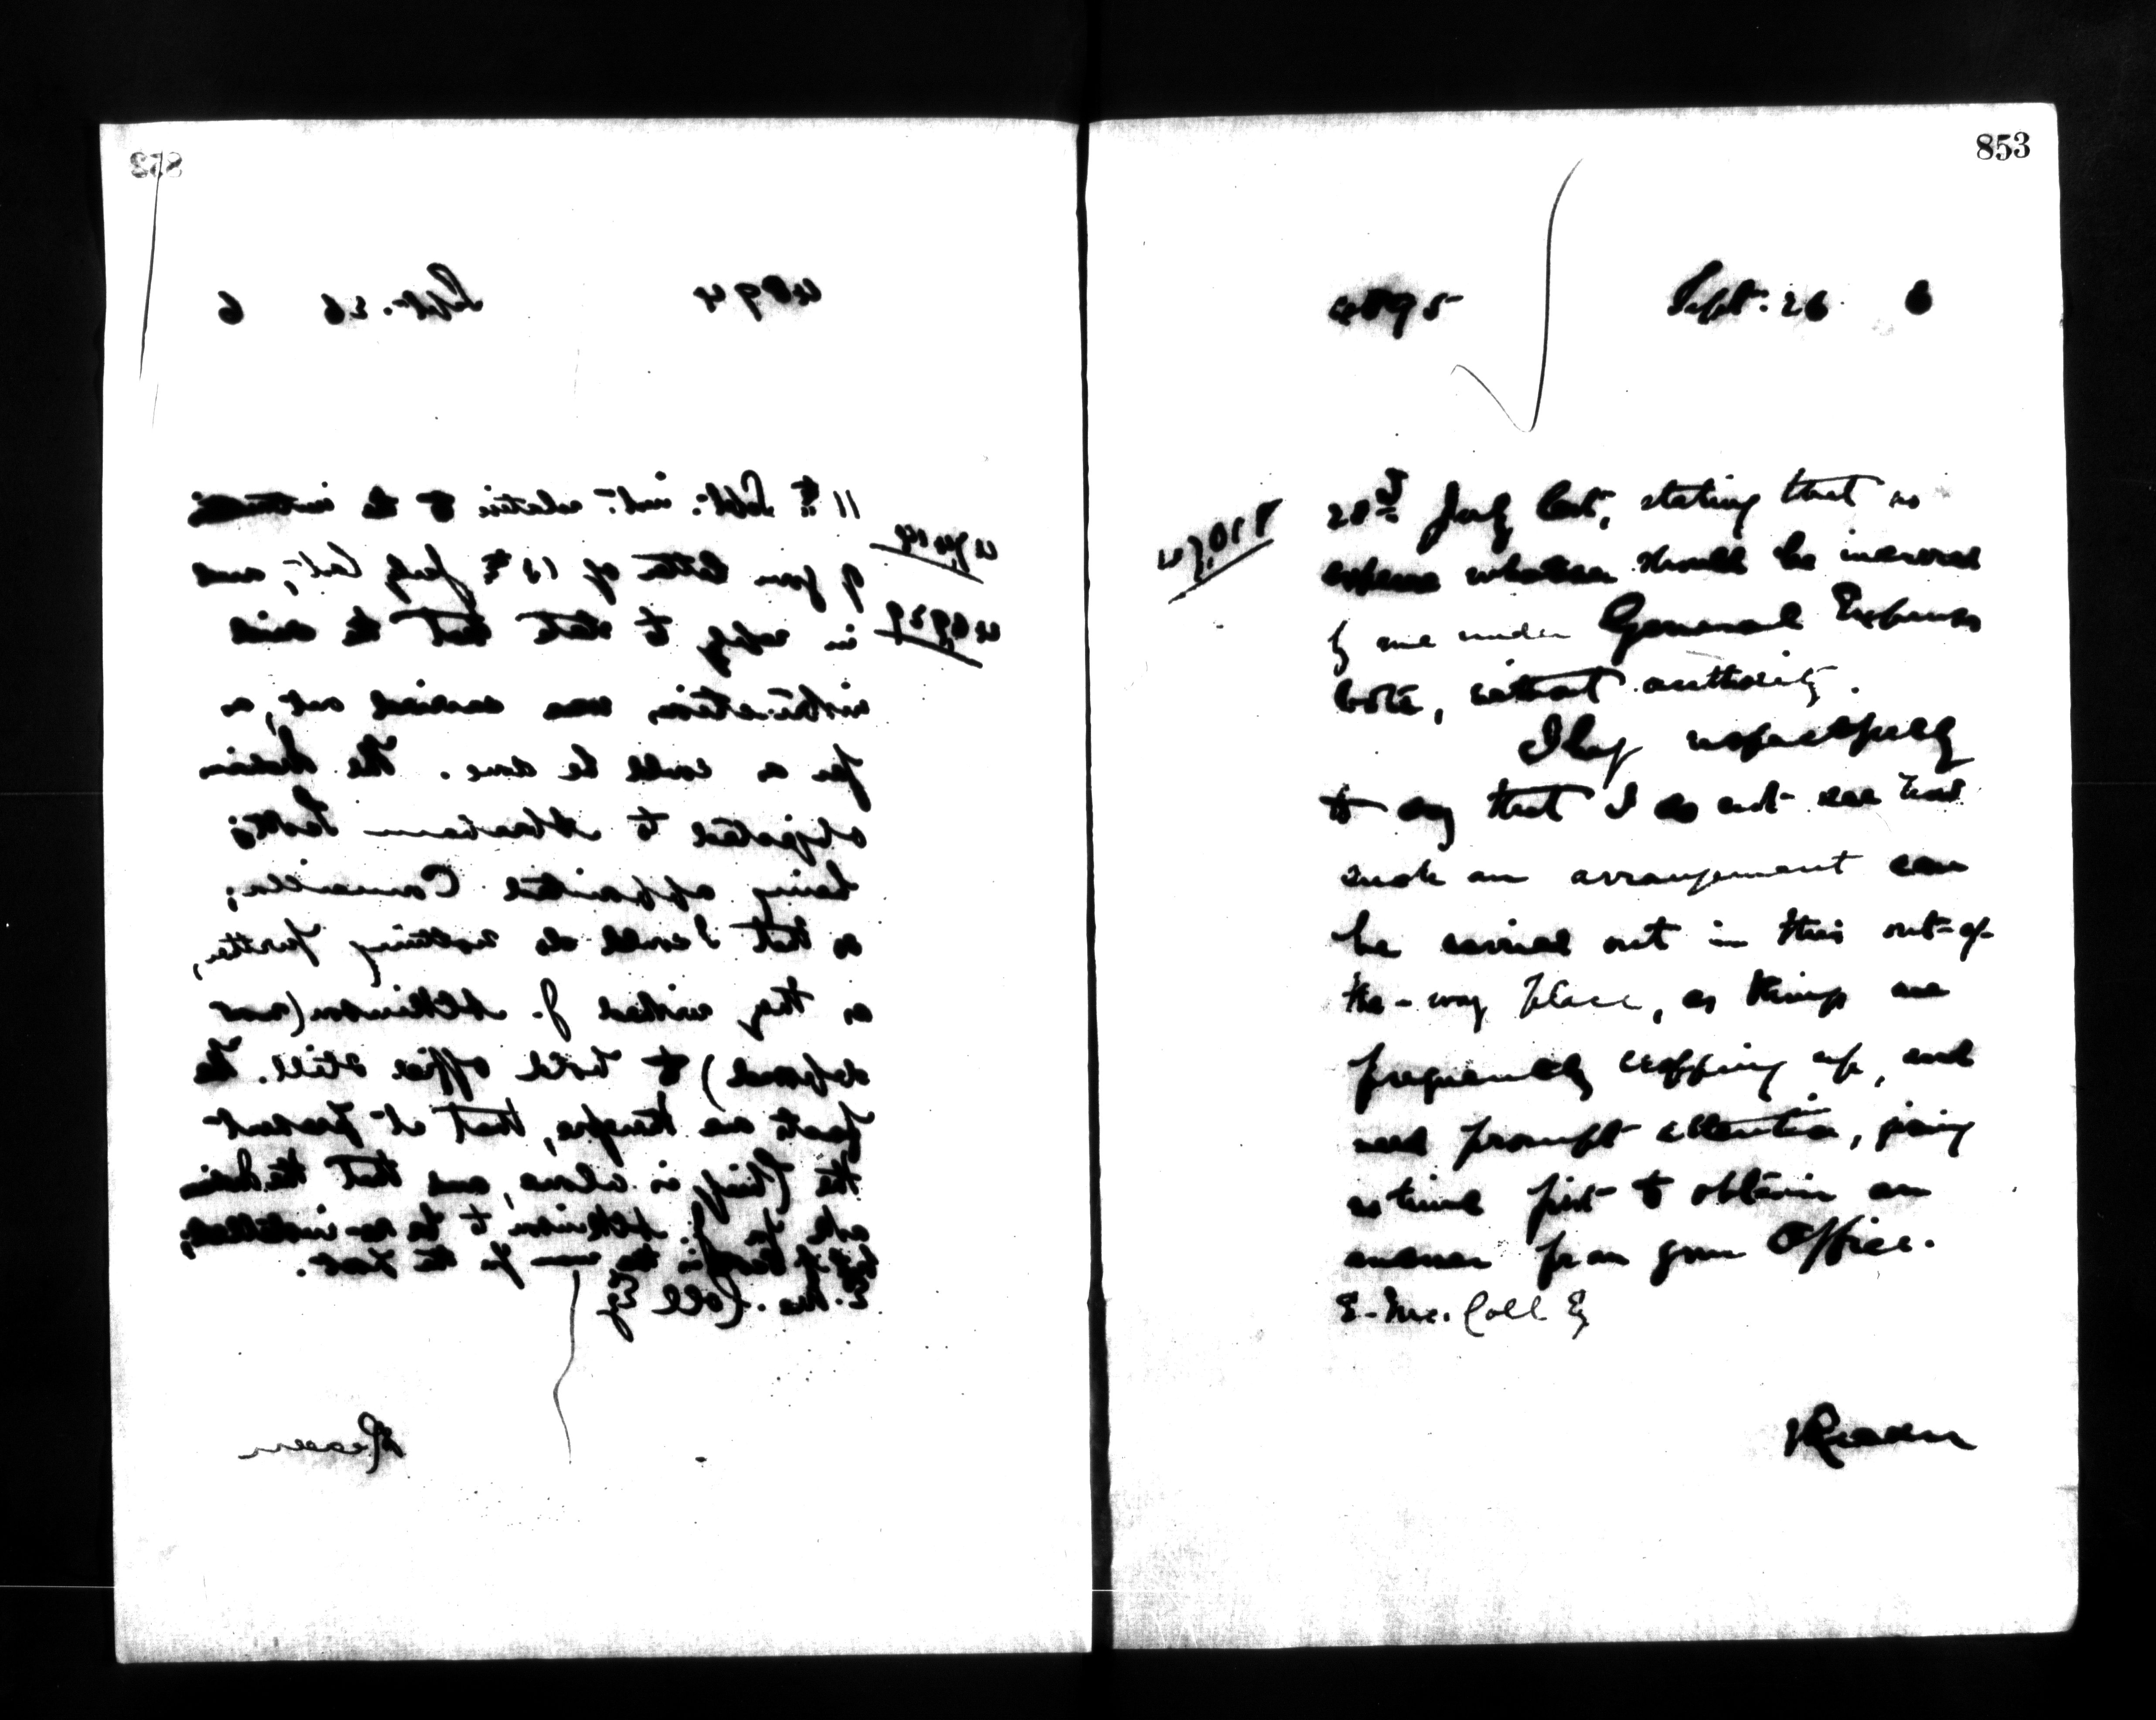 4894 Sept. 26 6
11th Sept. inst. relative to the
47014
of your letter of 15th July last, and
46929
in reply to state that the said
instruction was carried out, as
far as could be done. The Indians
objected to Abraham
being appointed Councillor;
so that I could do nothing further,
as they wished J. Atkinson (now
deposed) to hold office still. The
facts are therefore, that at present
the Chief is alone, and that the Indians
ask for J. Atkinson to be re-installed,
for the
E. Mc.Coll Esq
853
4895 Sept. 26 6
28th July last, stating that no
47018
expense whatever should be incurred
by me under General Expenses
vote, without authority.
I beg respectfully
to say that I do not see how
such an arrangement can
be carried out in this out-of-
the-way place, as things are
frequently cropping up, and
need prompt attention, giving
no time first to obtain an
answer from your Office.
E. Mc.Coll Esq
Reader